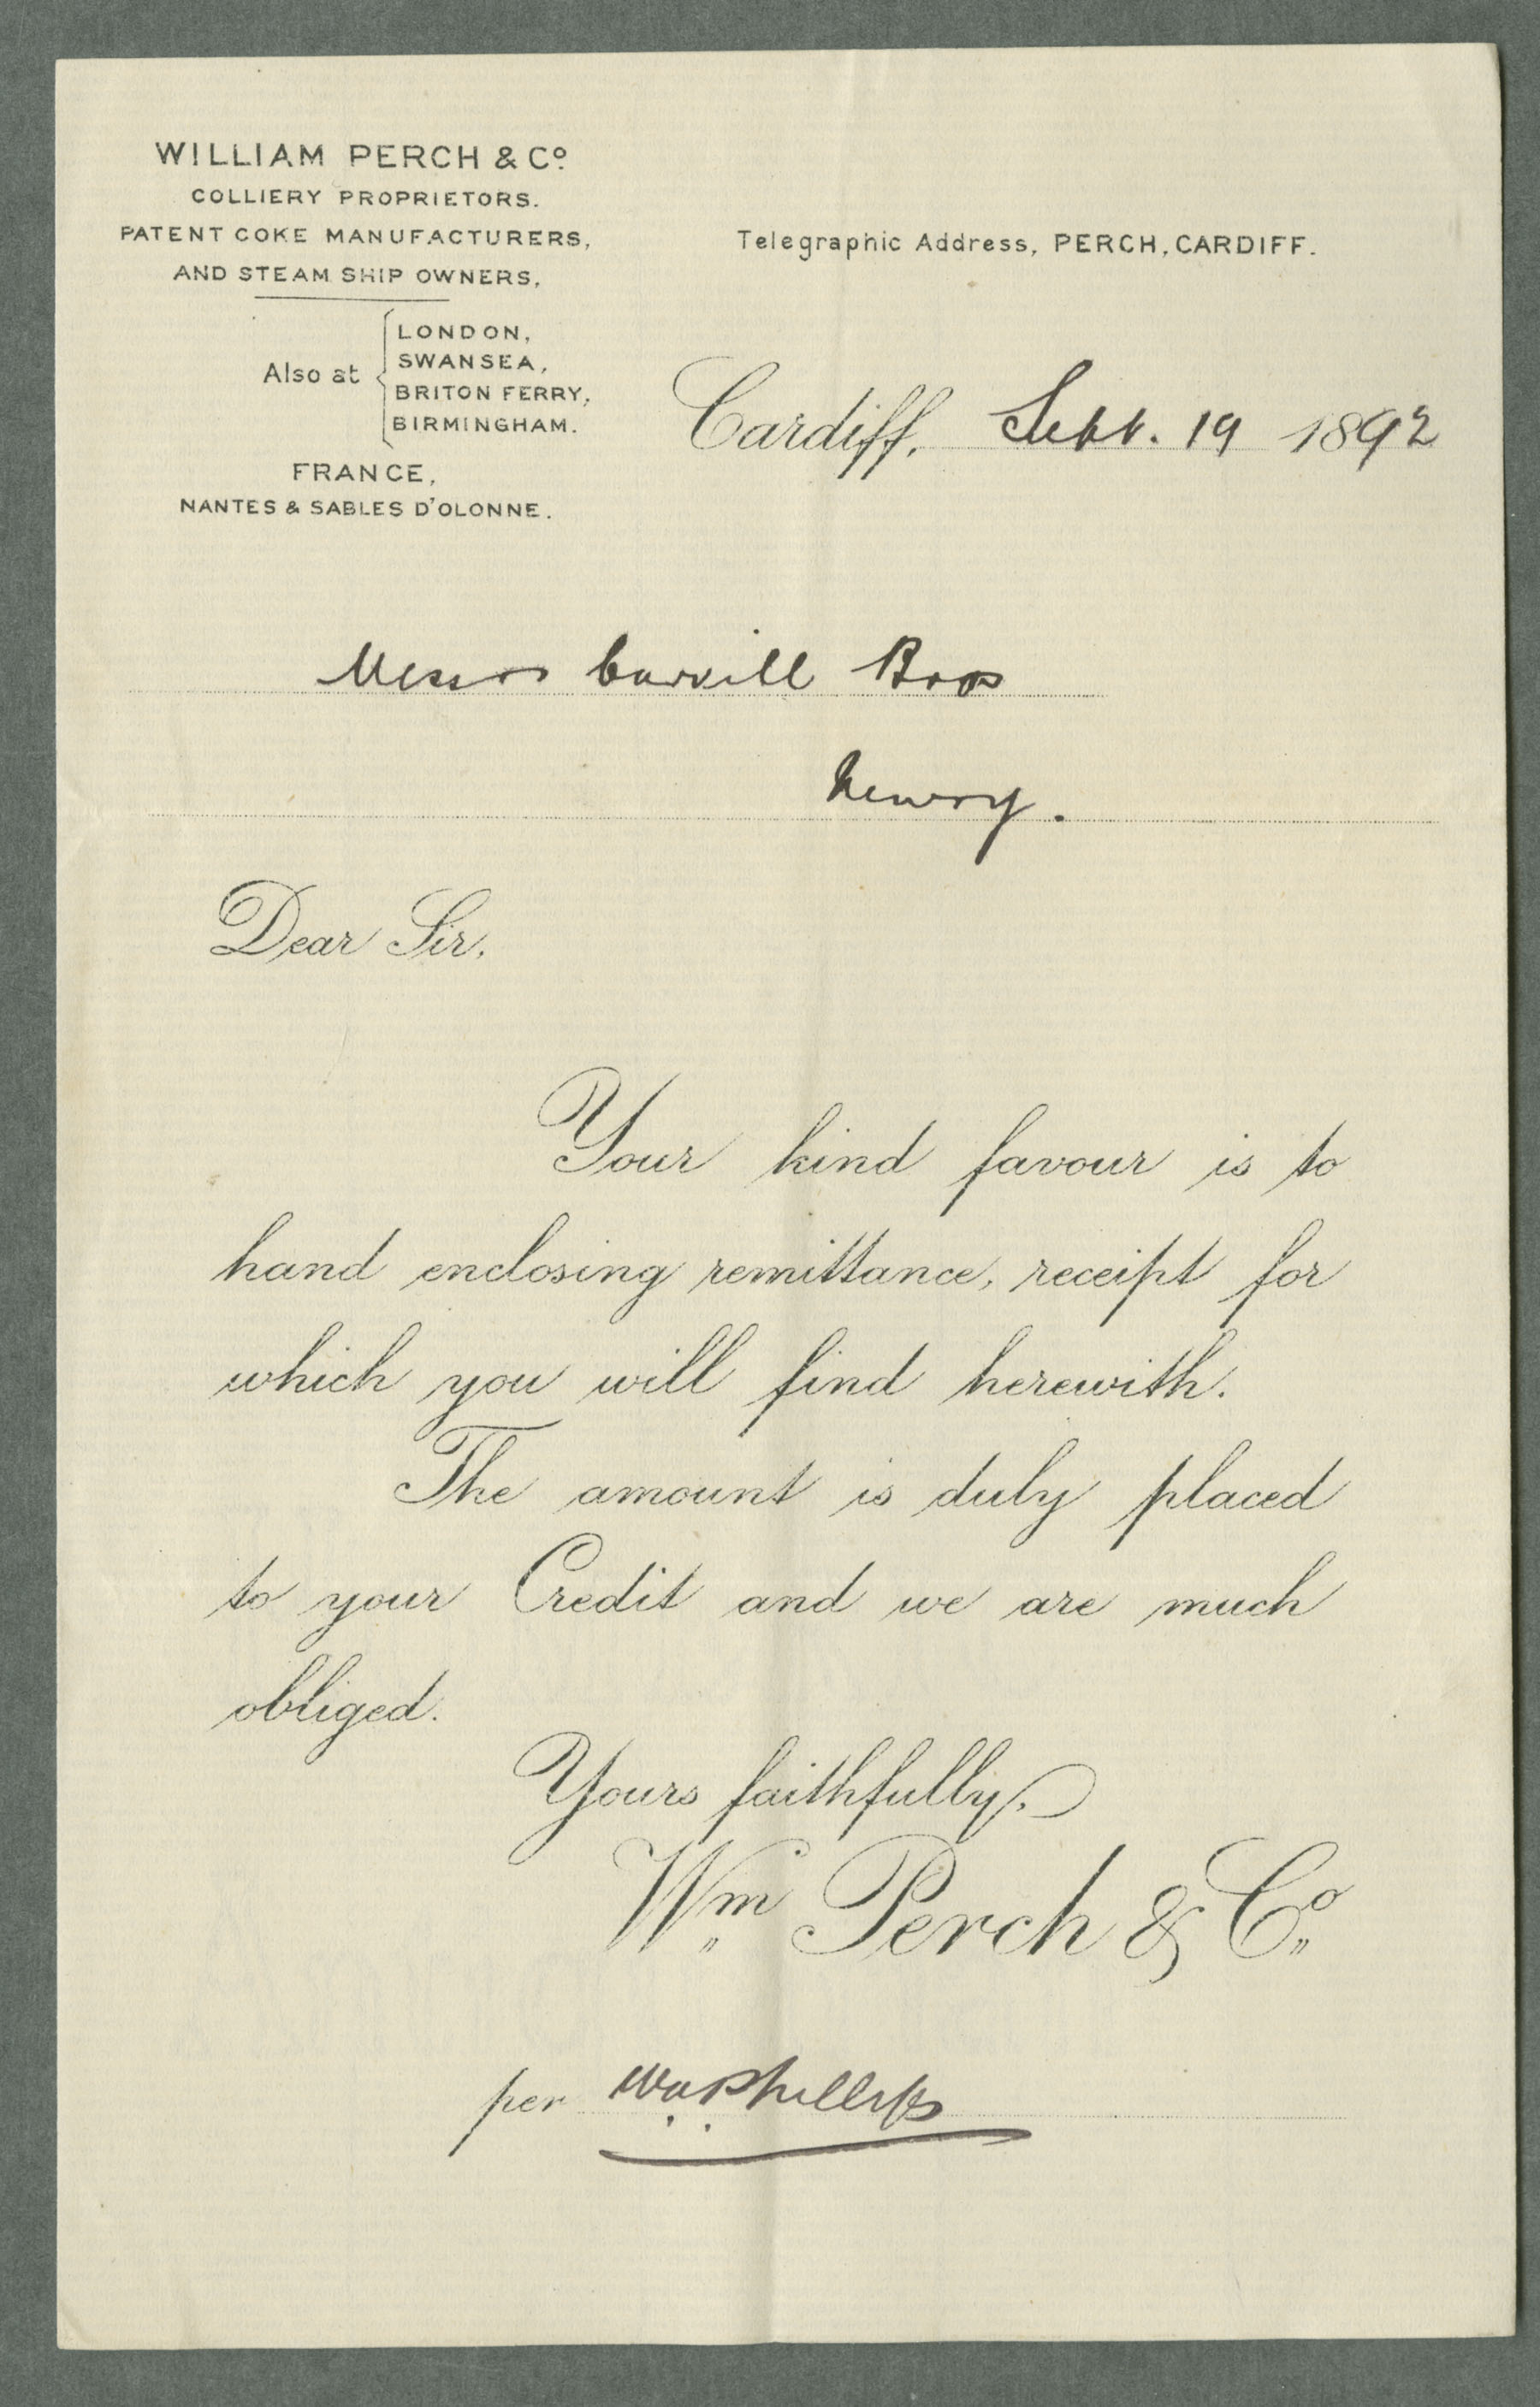 WILLIAM PERCH & Cº
COLLIERY PROPRIETORS.
PATENT COKE MANUFACTURERS,
AND STEAM SHIP OWNERS,
Telegraphic Address, PERCH, CARDIFF.
Also at
LONDON,
SWANSEA,
BRITON FERRY,
BIRMINGHAM.
FRANCE,
NANTES & SABLES D'OLONNE.
Cardiff, Sept. 19 1892
Messrs Carvill Bros
Newry.
Dear Sir,
Your kind favour is to
hand enclosing remittance, receipt for
which you will find herewith.
The amount is duly placed
to your Credit and we are much
obliged.
Yours faithfully,
Wm Perch & Cº
per Wm Phillips